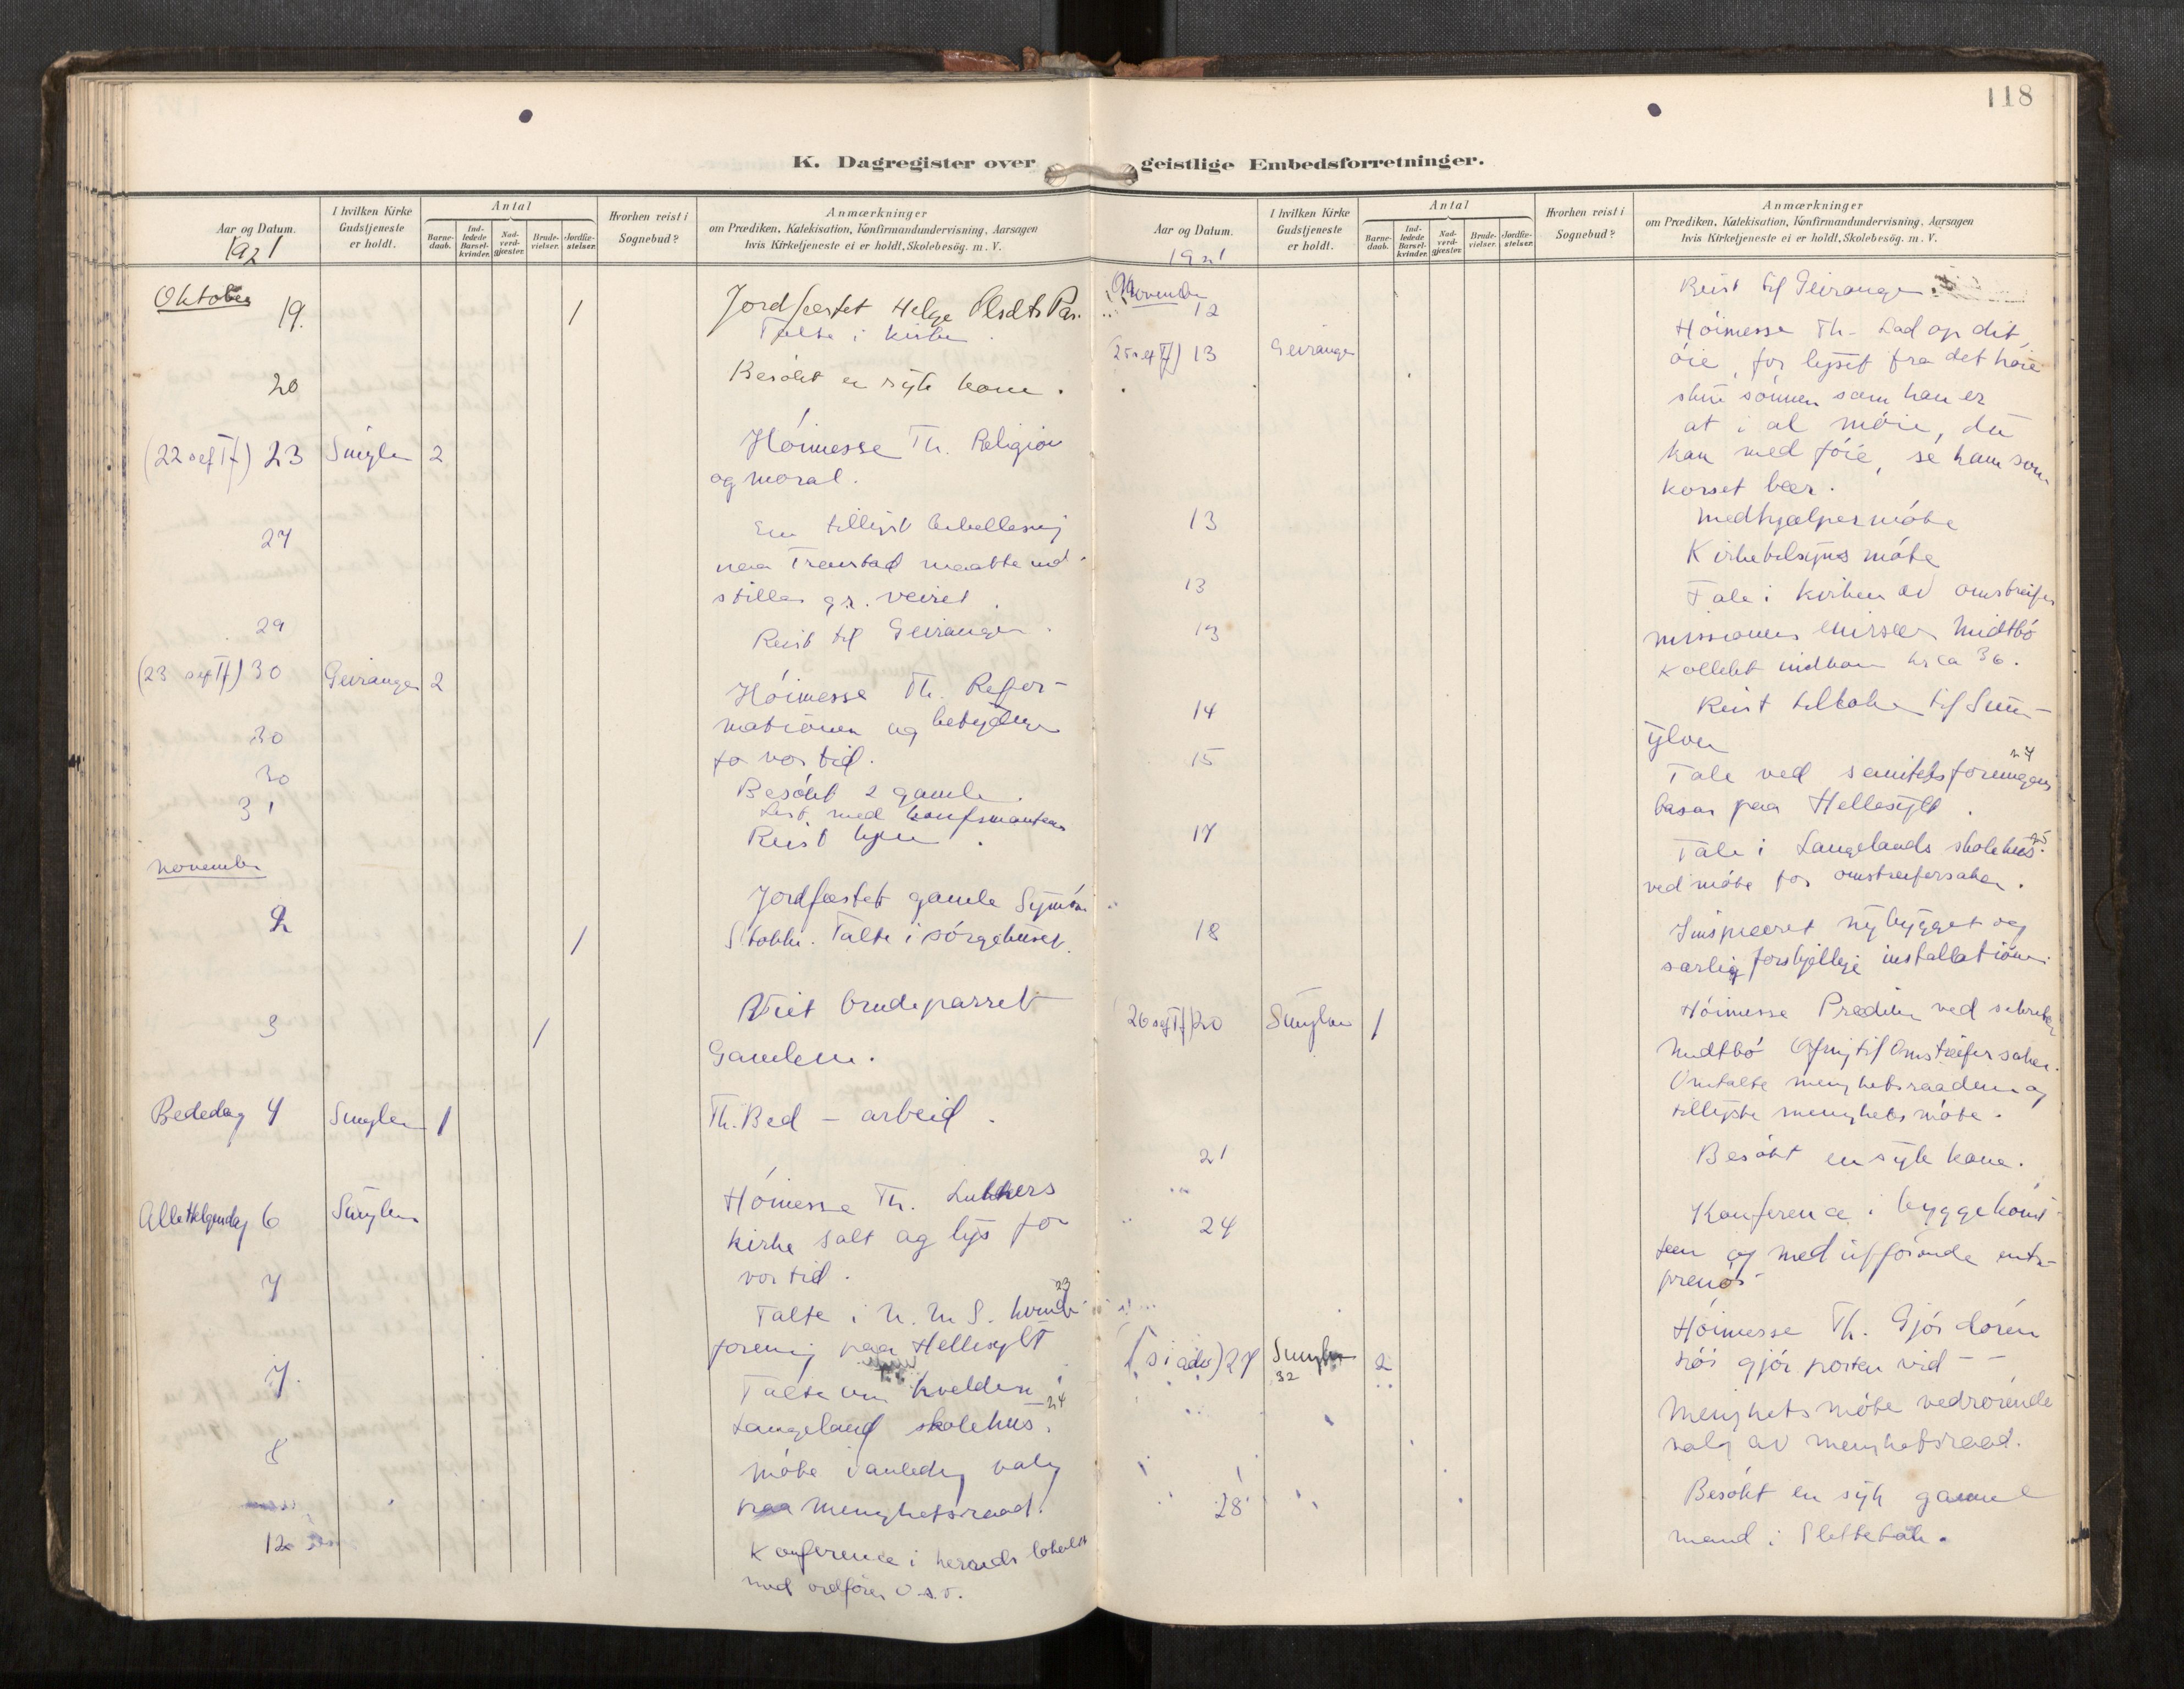 118
K. Dagregister over geistlige Embedsforretninger.
Aar og Datum.
1921
I hvilken Kirke Gudstjeneste er holdt.
Antal
Barne-daab.
Ind-ledede Barsel-kvinder.
Nad-verd-gjæster.
Brude-vielser.
Jordfæ-stelser.
Hvorhen reist i Sognebud?
Anmærkninger
om Prædiken, Katekisation, Konfirmandundervisning, Aarsagen
hvis Kirketjeneste ei er holdt, Skolebesög. m. V.
Oktober 19. 1 Jordfæstet Helge Olsdtr
Talte i kirken.
20 Besökt en syk kone.
(22 s e f Tf) 23 Sunylv 2 Höimesse Th. Religion
og moral.
27 En tillyst bibellesning
paa Tronstad maatte ind-
stilles gr. veiret.
29 Reist til Geiranger.
(23 s e f Tf) 30 Geiranger 2 Höimesse Th. Refor-
mationen og betydning
for vor tid.
30 Besökt 2 gamle.
30 Læst med konfirmantene
31 Reist hjem.
November
2 1 Jordfæstet gamle
Stokke. Talte i sörgehuset.
3 1 Viet brudeparret
Gamlem.
Bededag 4 Sunylven 1 Th. Bed – arbeid.
Alle Helgendag 6 Sunylven Höimesse Th. Luthers
kirke salt og lys for
vor tid.
7 Talte i N. M. S. kvinde- 23
forening paa Hellesylt
7. Talte om kvelden i
Langeland skolehus. 24
8 Möte i anledn valg
paa menighetsraad.
12 Konference i herreds lokalet
med ordförer o.s.v.
Aar og Datum.
1921
I hvilken Kirke Gudstjeneste er holdt.
Antal
Barne-daab.
Ind-ledede Barsel-kvinder.
Nad-verd-gjæster.
Brude-vielser.
Jordfæ-stelser.
Hvorhen reist i Sognebud?
Anmærkninger
om Prædiken, Katekisation, Konfirmandundervisning, Aarsagen
hvis Kirketjeneste ei er holdt, Skolebesög. m. V.
November
12 Reist til Geiranger.
(25 s e f Tf) 13 Geiranger Höimesse Th – Lad op dit
öie, for lyset fra det höie
skue sönnen som han er
at i al möie, du
kan med föie, se ham som
korset bær.
13 Medhjælpermöte
Kirketilsyns möte
13 Tale i kirken av omstreifer
13 missionens emissær Midtbö
Kollekt indkom kr ca 36.
14 Reist tilbake til Sun-
ylven
15 Tale ved sanitetsforeningens 24
basar paa Hellesylt.
17 Tale i Langelands skolehus 25
ved möte for omstreifersaken.
18 Inspiceret nybygget og
særlig forskjellige installationer
26 s e f Tf) 20 Sunylven 1 Höimesse Prædiken ved sekretær
Midtbö Ofring til Omstreifersaken.
Omtalte menighetsraadene og
tillyste menighetsmöte.
21 Besökt en syk kone.
24 Konference i byggekomi-
teen og med utförende entre-
prenör
(1 s i adv) 27 Sunylven 2 Höimesse Th. Gjör dören
32 höi gjör porten vid – –
Menighetsmöte vedrörende
valg av menighetsraad.
28 Besökt en syk gammel
mand i Slettebak.